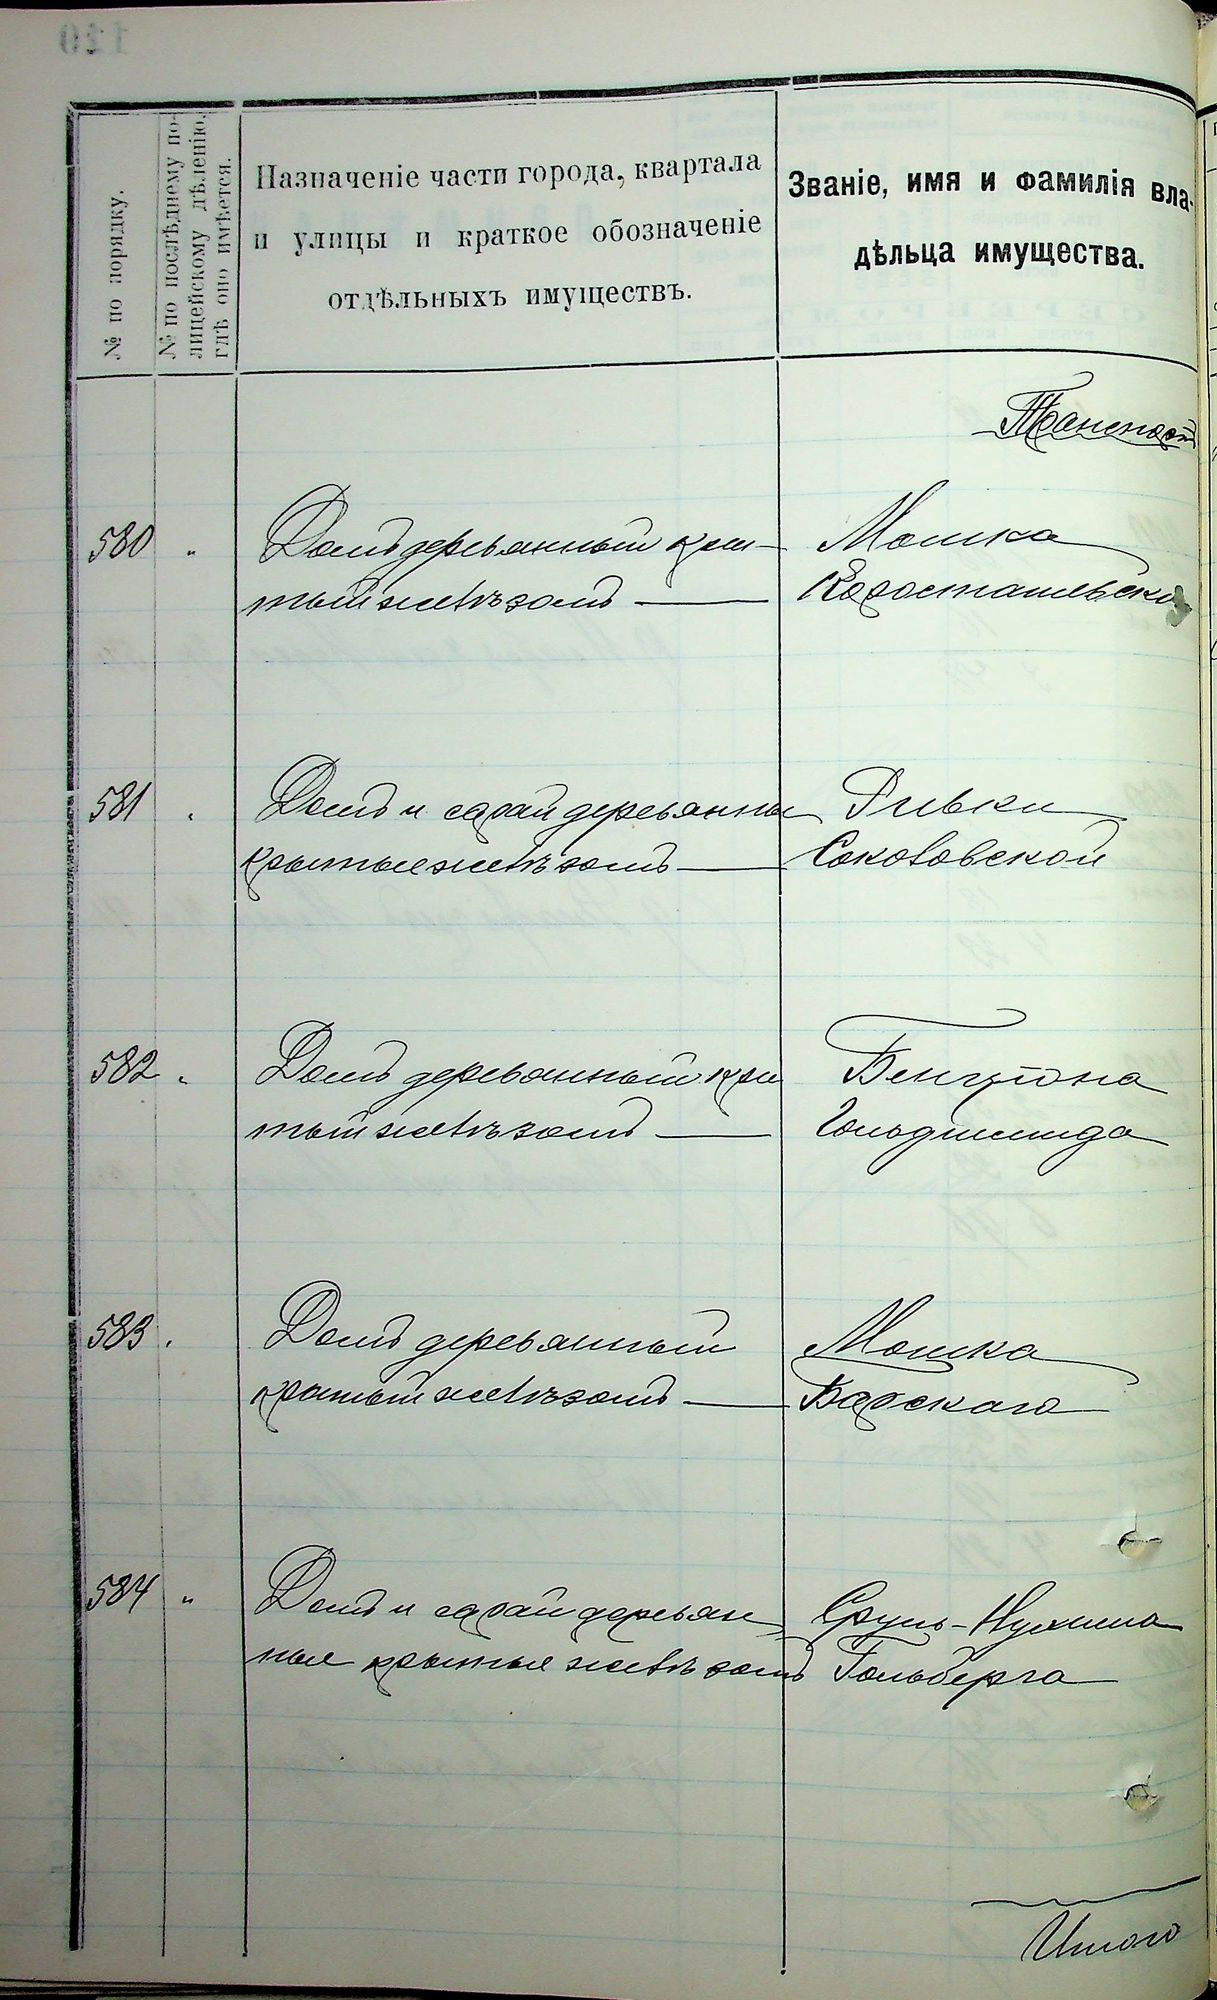 № по порядку.
№ по послѣднему по-
лицейскому дѣленію,
гдѣ оно имѣется.
Назначеніе части города, квартала
и улицы и краткое обозначеніе
отдѣльныхъ имуществъ.
Званіе, имя и фамилія вла-
дѣльца имущества.
Транспорт
580 " Домъ деревянный кры-
тый желѣзомъ
Мошка
Коростышевск
581 " Домъ и сарай деревянны
крытые желѣзомъ
Ривки
Соколовской
582 " Домъ деревянный кры
тый желѣзомъ
Бенціона
Гольдшмида
583 " Домъ деревянный
крытый желѣзомъ
Мошка
Барскаго
584 " Домъ и сарай деревян
ные крытые желѣзомъ
Сруль-Нухима
Гольберга
Итого